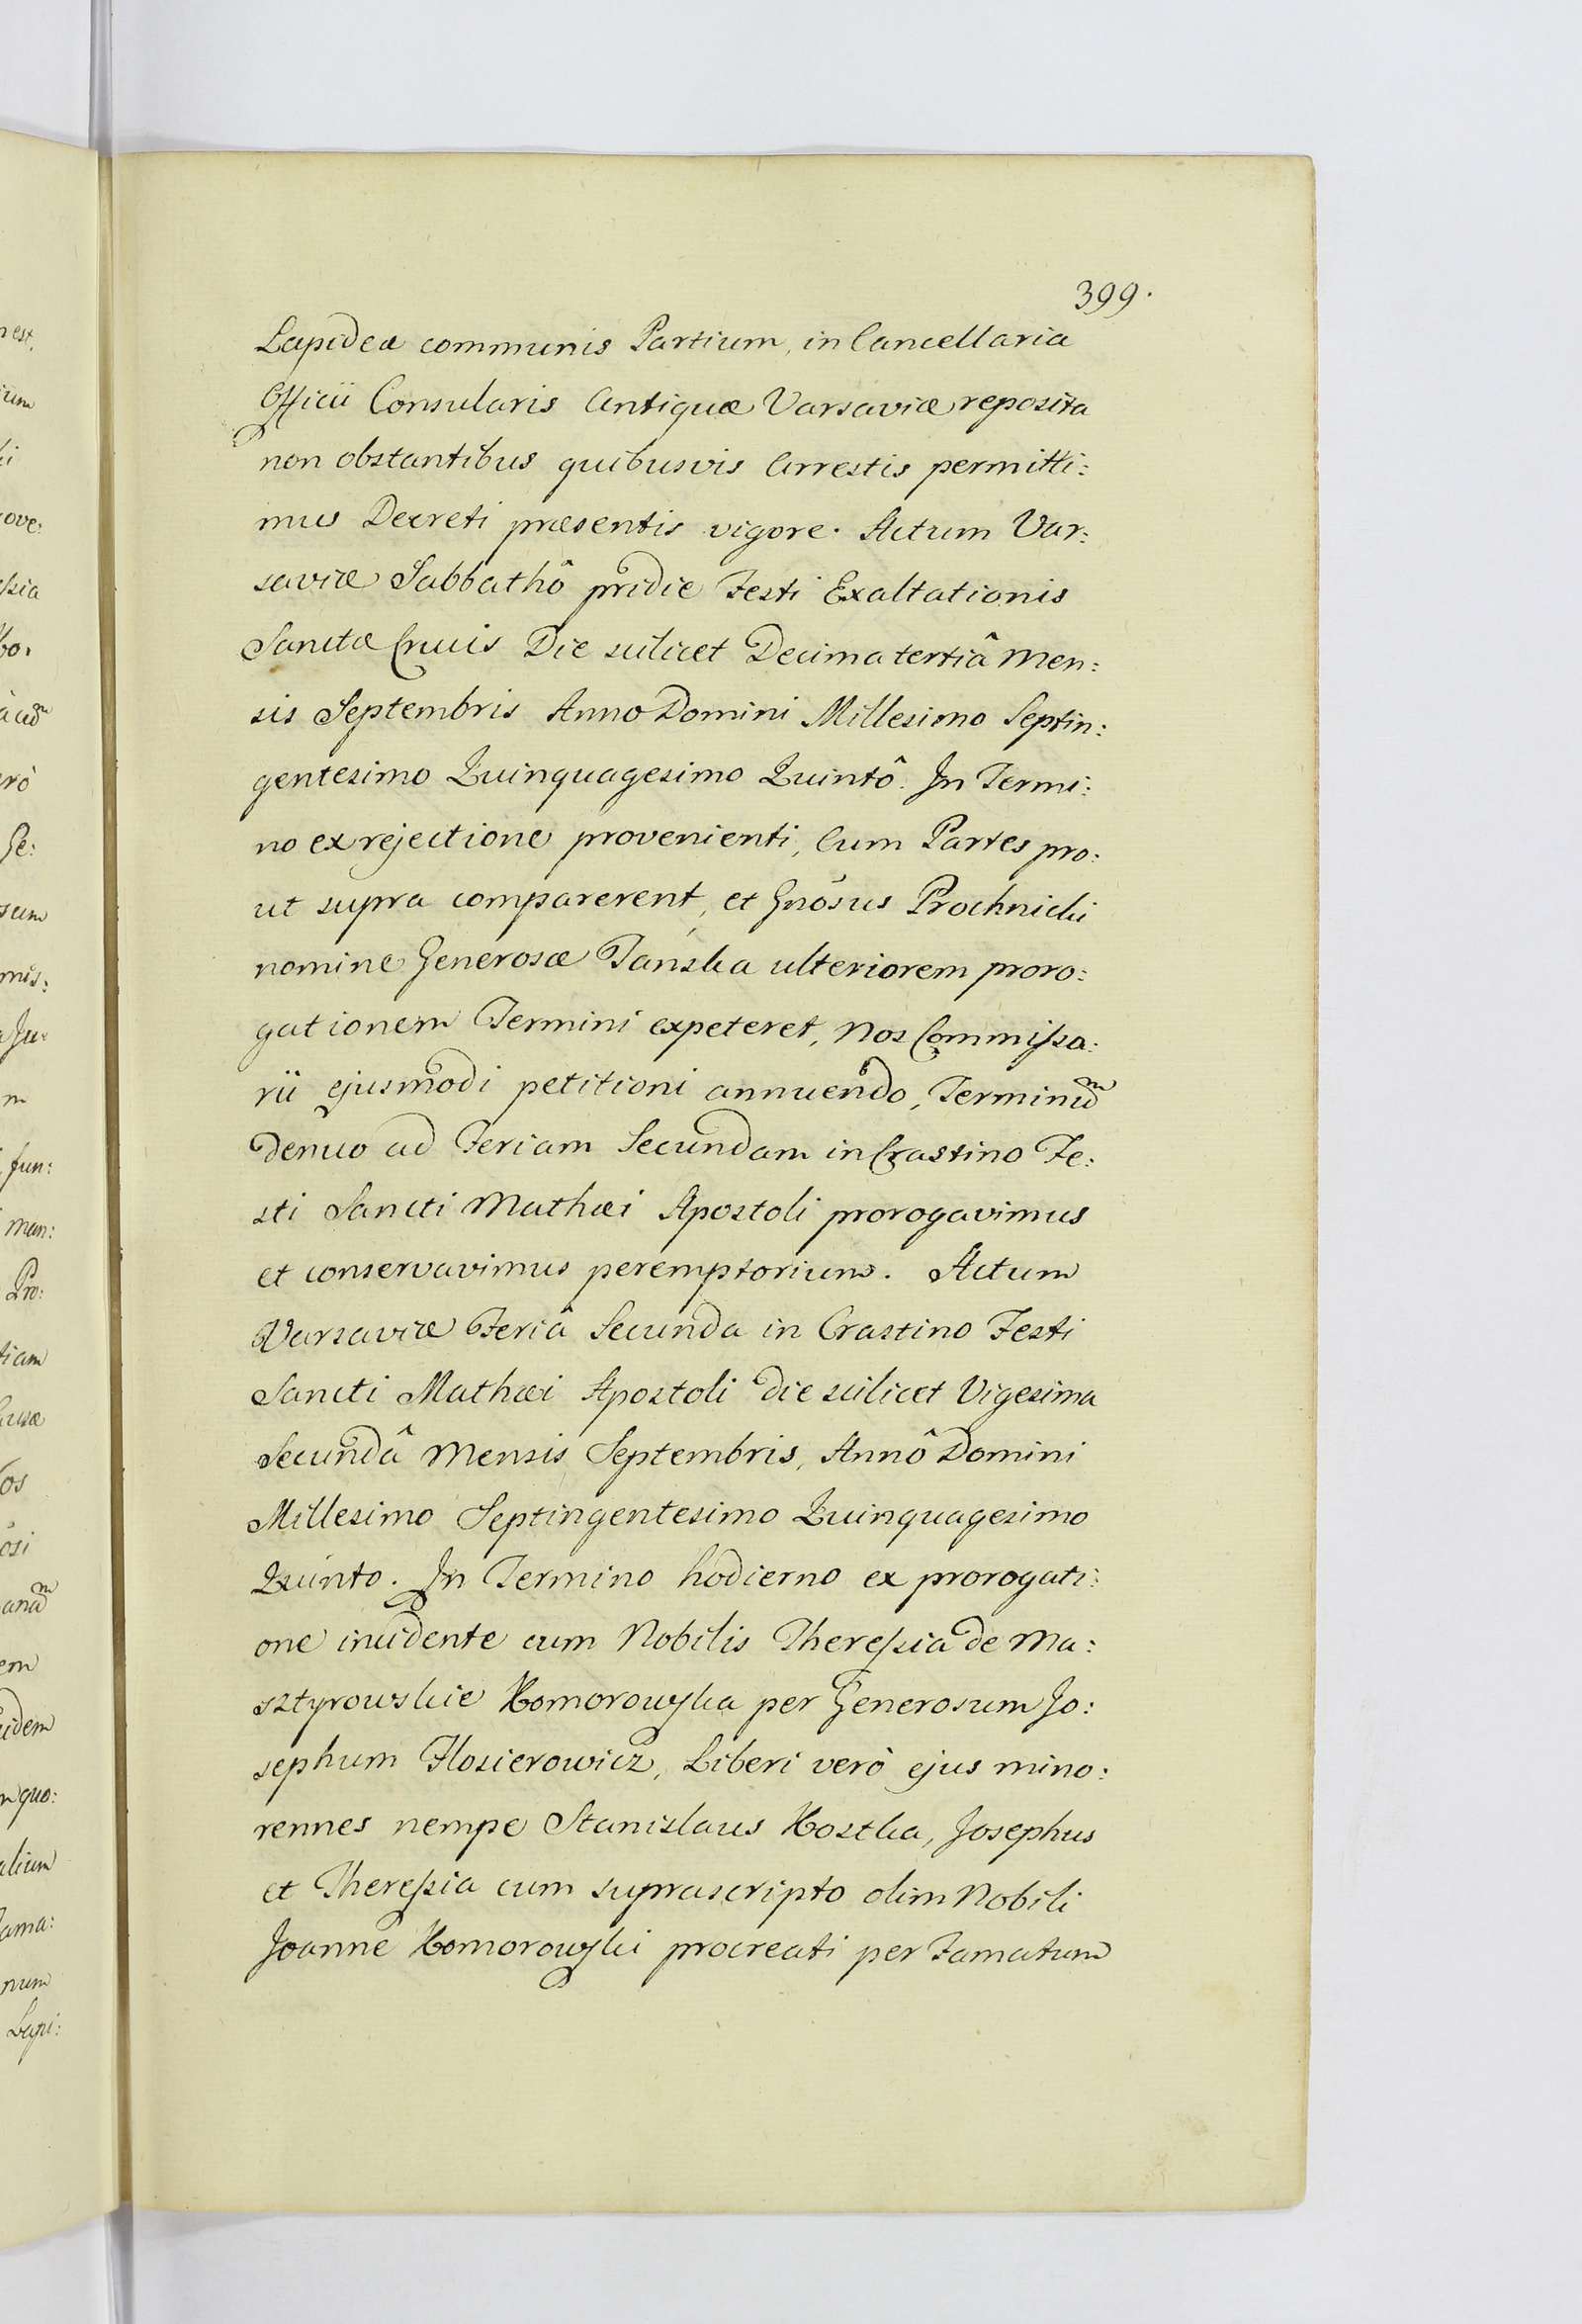 399.
Lapidea communis Partium, in Cancellaria
Officii Consularis Antiquæ Varsaviæ reposita
non obstantibus quibusvis Arrestis permitti:
mus Decreti præsentis vigore. Actum Var:
saviæ Sabbathô pridie Festi Exaltationis
Sanctæ Crucis Die scilicet Decima tertiâ Men:
sis Septembris Anno Domini Millesimo Septin:
gentesimo Quinquagesimo Quintô. In Termi:
no ex rejectione provenienti, Cum Partes pro:
ut supra comparerent, et Gnõsus Prochnicki
nomine Generosæ Tańska ulteriorem proro:
gationem Termini expeteret, Nos Commißa:
rii ejusmodi petitioni annuendo, Terminũm
denuo ad Feriam Secundam in Crastino Fe:
sti Sancti Mathæi Apostoli prorogavimus
et conservavimus peremptorium. Actum
Varsaviæ Feriâ Secunda in Crastino Festi
Sancti Mathæi Apostoli die scilicet Vigesima
Secundâ Mensis Septembris, Annô Domini
Millesimo Septingentesimo Quinquagesimo
Quinto. In Termino hodierno ex prorogati:
one incidente cum Nobilis Thereßia de Ma:
sztyrowskie Komorowska per Generosum Jo:
sephum Flosierowicz, Liberi verò ejus mino:
rennes nempe Stanislaus Kostka, Josephus
et Thereßia cum suprascripto olim Nobili
Joanne Komorowski procreati per Famatum